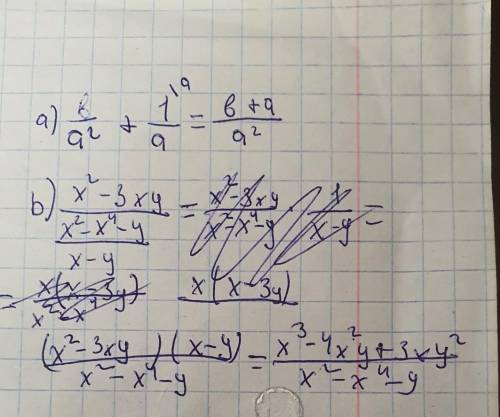 a) в/a² + 1\a/a = в+a/a²
b) x²-3xy / (x²-x⁴-y / x-y) = x²-3xy / x²-x⁴-y · 1 / x-y =
= x(x-3y) / x²-x⁴ x(x-3y)
(x²-3xy)(x-y) / x²-x⁴-y = x³-4x²y+3xy² / x²-x⁴-y